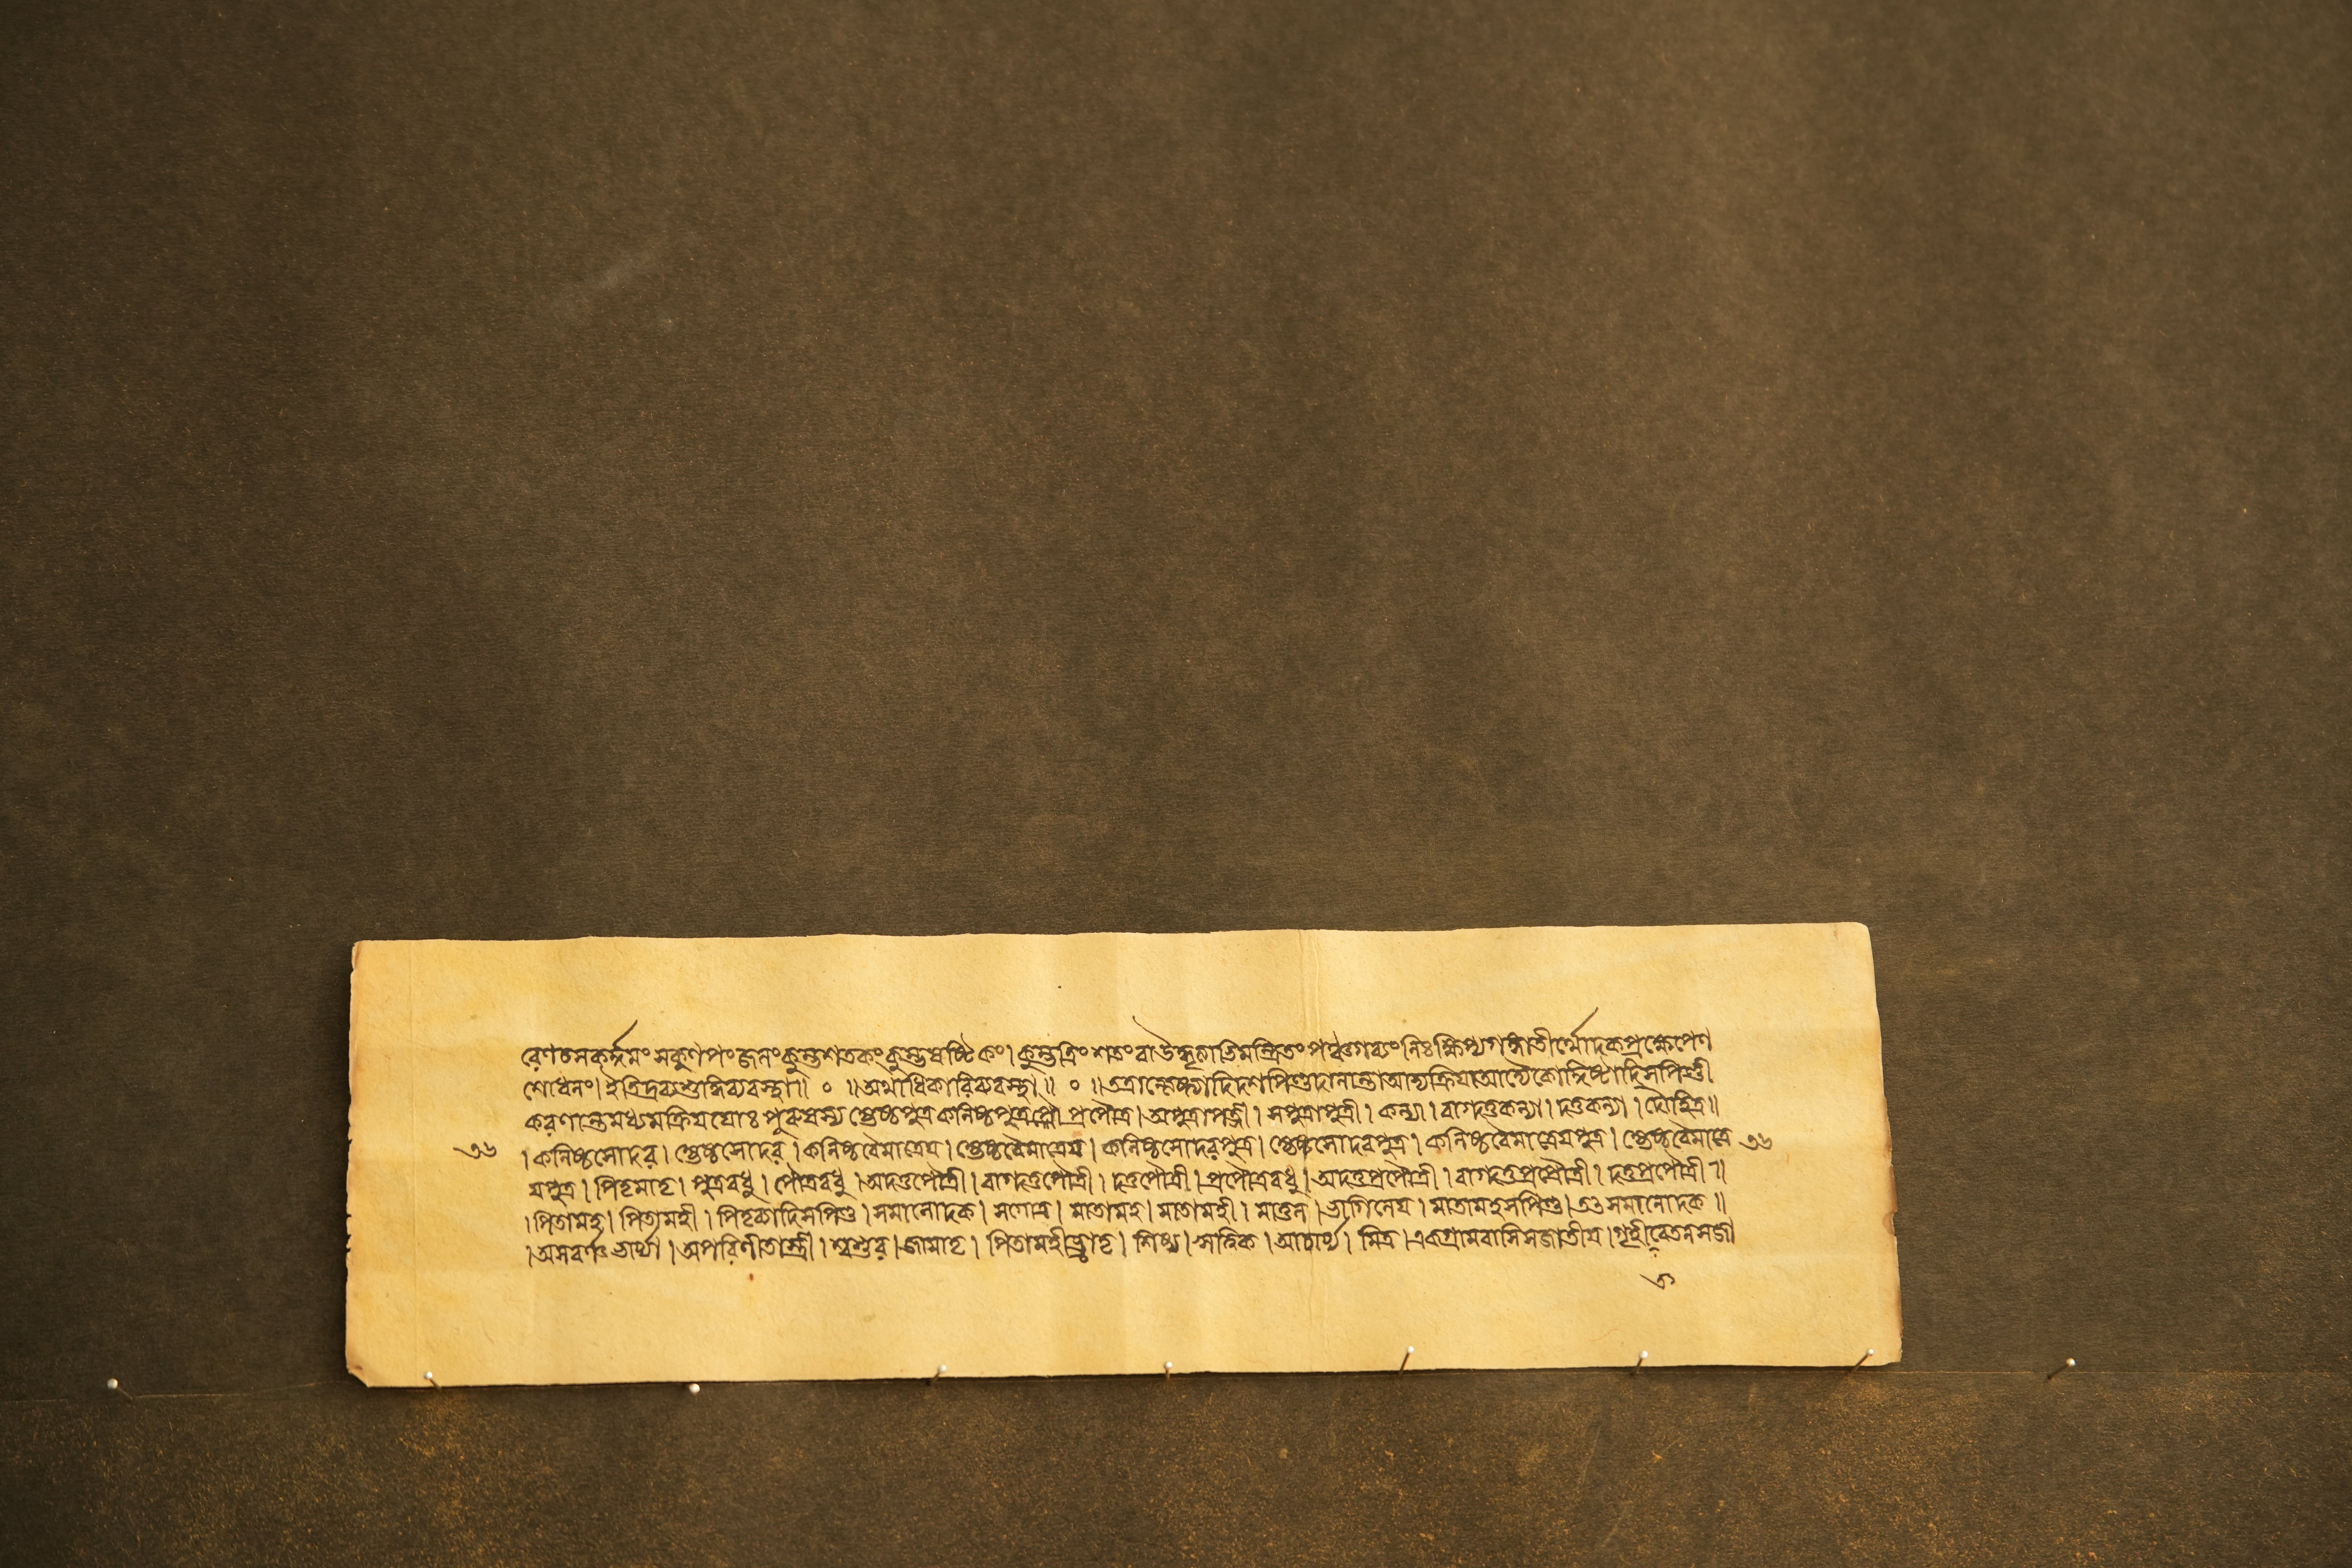 রেণচসকর্দ্দমং সকুণপংজলংকুম্ভশতকংকুম্ভষষ্টিকং। কুম্ভত্রিংশতংবাউদ্ধৃত্যাভিমন্ত্রিতং পঞ্চগব্যংনিঃক্ষিপ্যগঙ্গাতীর্থোদকপ্রক্ষেপেণ
শোধনং। ইতিদ্রব্যশুদ্ধিব্যবস্থা॥ ০ ॥অথাধিকারিব্যবস্থা॥ ০ ॥তত্রান্ত্যেষ্ট্যাদিদশপিণ্ডদানান্তাআদ্যক্রিযাআদ্যৈকোদ্দিষ্টাদিসপিণ্ডী
করণান্তমধ্যমক্রিযযোঃ পুরুষস্য জ্যেষ্ঠপুত্র কনিষ্ঠপুত্র পৌ প্রপৌত্র। অপুত্রাপত্নী। সপুত্রাপত্নী। কন্যা। বাগদত্তকন্যা। দত্তকন্যা। দৌহিত্র॥
৩৬ । কনিষ্ঠসোদর। জ্যেষ্ঠসোদর। কনিষ্ঠবৈমাত্রেয। জ্যেষ্ঠবৈমাত্রেয। কনিষ্ঠসোদরপুত্র। জ্যেষ্ঠসোদরপুত্র। কনিষ্ঠবৈমাত্রেযপুত্র। জ্যেষ্ঠবৈমাত্রে ৩৬
যপুত্র। পিতৃমাতৃ। পুত্রবধু। পৌত্রবধু। অদত্তপৌত্রী। বাগদত্তপৌত্রী। দত্তপৌত্রী। প্রপৌত্রবধু। অদত্তপ্রপৌত্রী। বাগদত্তপ্রপৌত্রী। দত্তপ্রপৌত্রী॥
। পিতামহ। পিতামহী। পিতৃব্যাদিসপিণ্ড। সমানোদক। সগোত্র। মাতামহ। মাতামহী। মাতুল। ভাগিনেয। মাতামহসপিণ্ড। তত্তসমানোদক॥
। অসবর্ণাভার্য্যা। অপরিণীতাস্ত্রী। শ্বশুর। জামাতৃ। পিতামহীভ্রাতৃ। শিষ্য। ঋত্বিক। আচার্য্য। মিত্র। একগ্রামবাসিসজাতীয। গৃহীবেতনসজা
ত